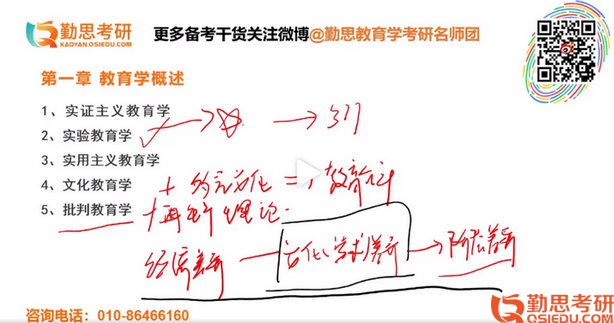 勤思考研
KAOYAN.QSIEDU.COM
更多备考干货关注微博@勤思教育学考研名师团
第一章 教育学概述
1、实证主义教育学
2、实验教育学
3、实用主义教育学
4、文化教育学
5、批判教育学
再生产理论
经济差异
文化、学术差异
阶层差异
咨询电话：010-86466160
勤思考研
QSIEDU.COM